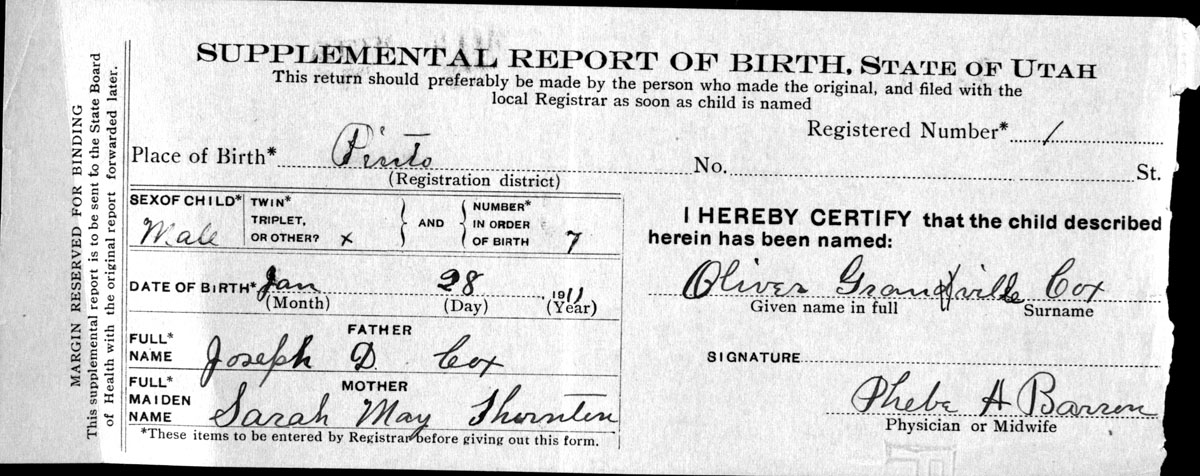 MARGIN RESERVED FOR BINDING
This supplemental report is to be sent to the State Board
of Health with the original report forwarded later.
SUPPLEMENTAL REPORT OF BIRTH, STATE OF UTAH
This return should preferably be made by the person who made the original, and filed with the
local Registrar as soon as child is named
Registered Number* 1
Place of Birth* Pinto No. St.
(Registration district)
SEX OF CHILD* Male TWIN* TRIPLET, OR OTHER? x AND NUMBER* IN ORDER OF BIRTH 7
DATE OF BIRTH* Jan 28 1911
(Month) (Day) (Year)
FATHER
FULL* NAME Joseph D. Cox
MOTHER
FULL* MAIDEN NAME Sarah May Thornton
*These items to be entered by Registrar before giving out this form.
I HEREBY CERTIFY that the child described
herein has been named:
Oliver Grandville Cox
Given name in full Surname
SIGNATURE
Phebe A Barron
Physician or Midwife